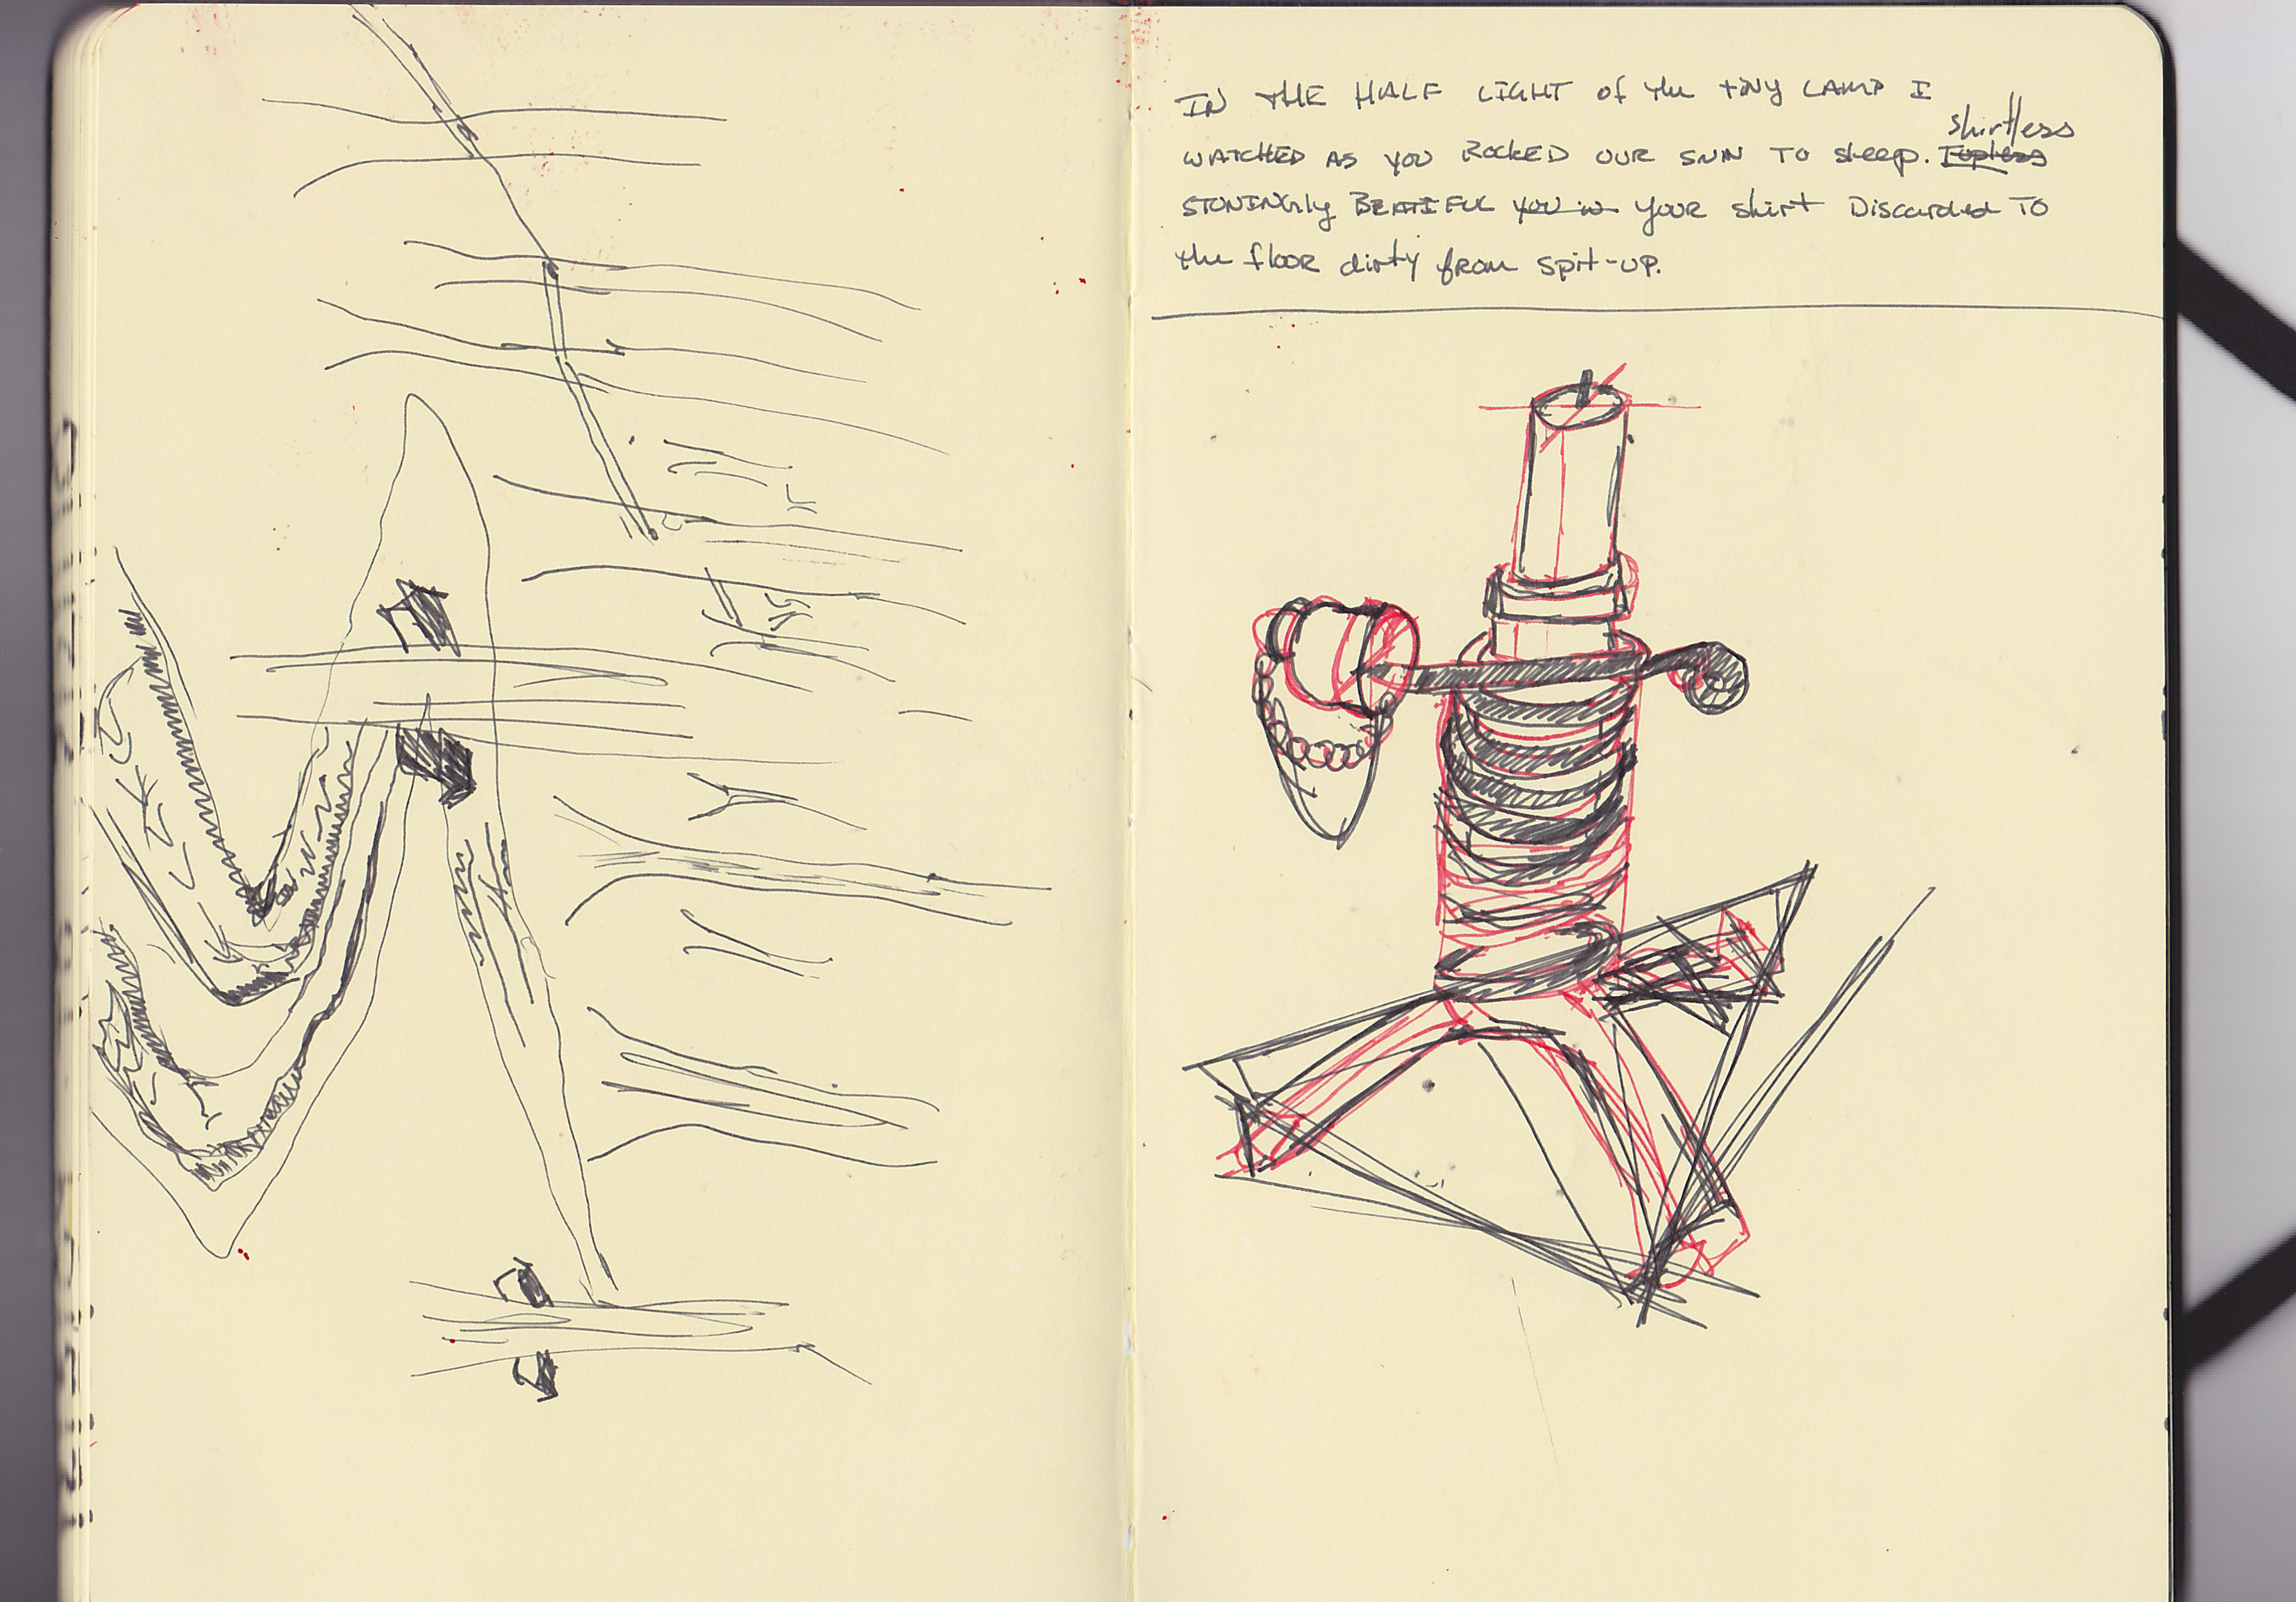 IN THE HALF LIGHT of the tiny LAMP I
shirtless
WATCHED AS YOU ROCKED OUR SUN TO sleep. Topless
STUNINGly BEATIFUL you in YOUR shirt Discarded TO
the floor dirty from spit-up.